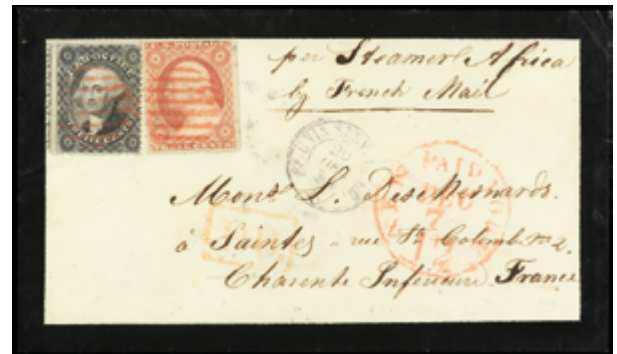 per Steamer Africa
by French Mail
U.S. POSTAGE
PAID
NEW YORK
DEC
Monsr L. Desmesnards.
à Saintes - rue Ste Colombe no 2.
Charente Inférieure. France